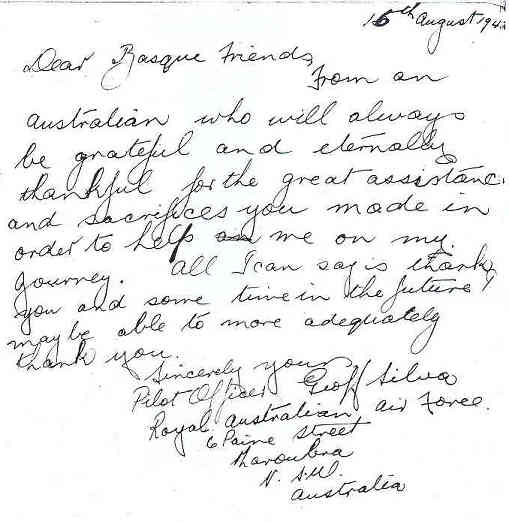 16th August 194
Dear Basque Friends,
From an
Australian who will always
be grateful and eternally
thankful for the great assistance
and sacrifices you made in
order to help on me on my
journey. All I can say is thank
you and some time in the future I
may be able to more adequately
thank you.
Sincerely yours
Pilot Officer Geoff Silva
Royal Australian Air Force.
6 Paine Street
Maroubra
N.S.W.
Australia